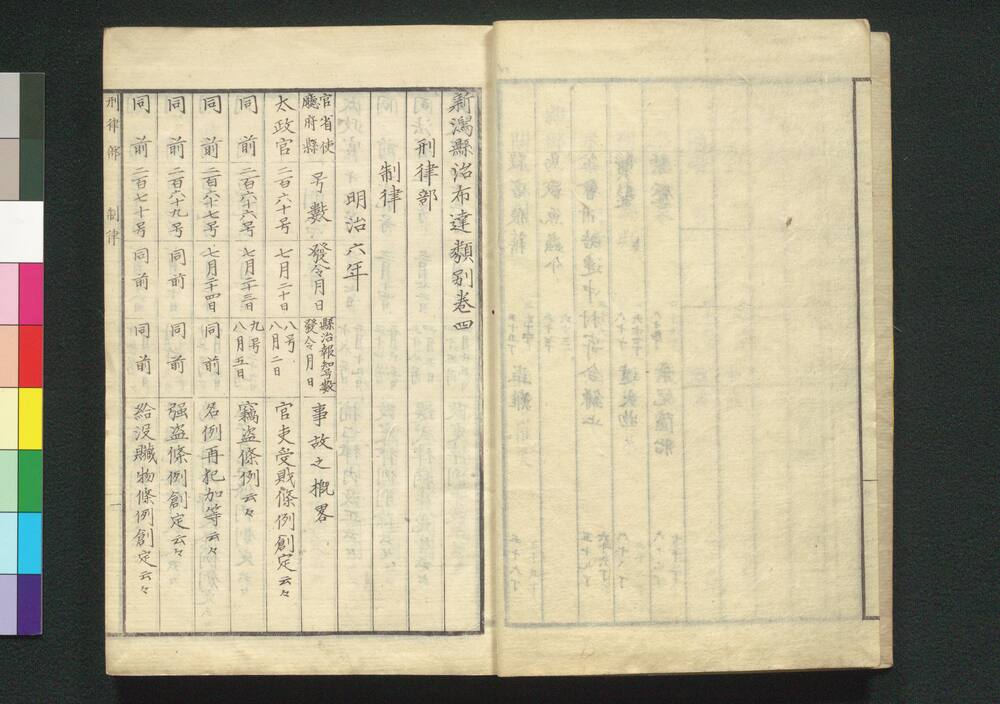 新潟縣治布達類別卷四
刑律部
制律
明治六年
官省使廳府縣 号數 發令月日 縣治報知号數發令月日 事故之概畧
太政官 二百六十号 七月二十日 八号八月二日 官吏受賍條例創定云々
同前 二百六十六号 七月二十三日 九号八月五日 竊盗條例云々
同前 二百六十七号 七月二十四日 同前 名例再犯加等云々
同前 二百六十九号 同前 同前 强盗條例創定云々
同前 二百七十号 同前 同前 給没贓物條例創定云々
刑律部 制律 一